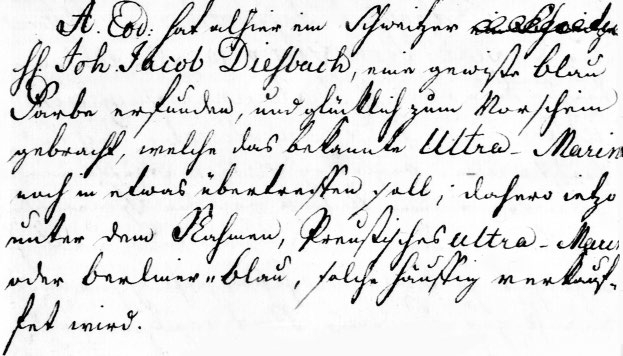 A. Eod: hat alhier ein Schweitzer
H. Joh Jacob Diesbach, eine gewisse blau
Farbe erfunden, und glücklich zum Vorschein
gebracht, welche das bekannte Ultra-Marin
noch in etwas übertreffen soll; dahero ietzo
unter dem Nahmen, Preussisches ultra-Marin
oder berliner=blau, solche häuffig verkauf-
fet wird.